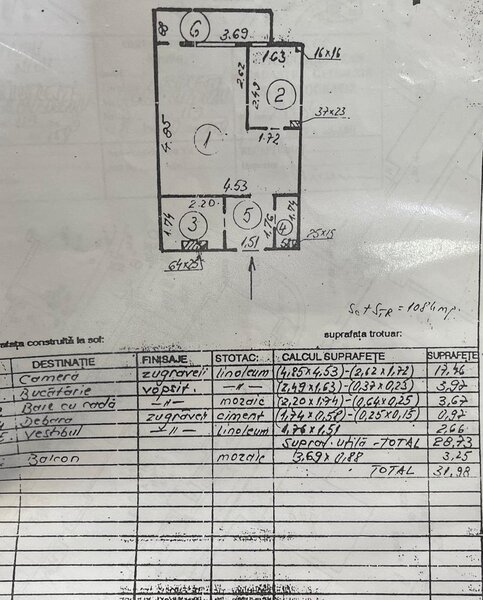 6
88
3.69
1.63
16x16
2.62
2.49
2
37x23
1.72
4.85
1
4.53
2.20
1.74
3
5
1.76
4
1.74
1.51
64x25
25x15
SC + STR = 1084mp.
afața construită la sol:
suprafața trotuar:
DESTINAȚIE FINISAJE STOTAC: CALCUL SUPRAFETE SUPRAFETE
Cameră zugrăveli linoleum (4,85x4,53)-(2,62x1,72) 17,46
Bucătărie vopsit. —"— (2,49x1,63)-(0,37x0,23) 3,97
Baie cu cadă —"— mozaic (2,20x1,74)-(0,64x0,25) 3,67
Debara zugrăveli ciment (1,74x0,58)-(0,25x0,15) 0,97
Vestibul —"— linoleum 1,76x1,51 2,66
Supraf. utilă -TOTAL 28,73
Balcon mozaic 3,69x0,88 3,25
TOTAL 31,98